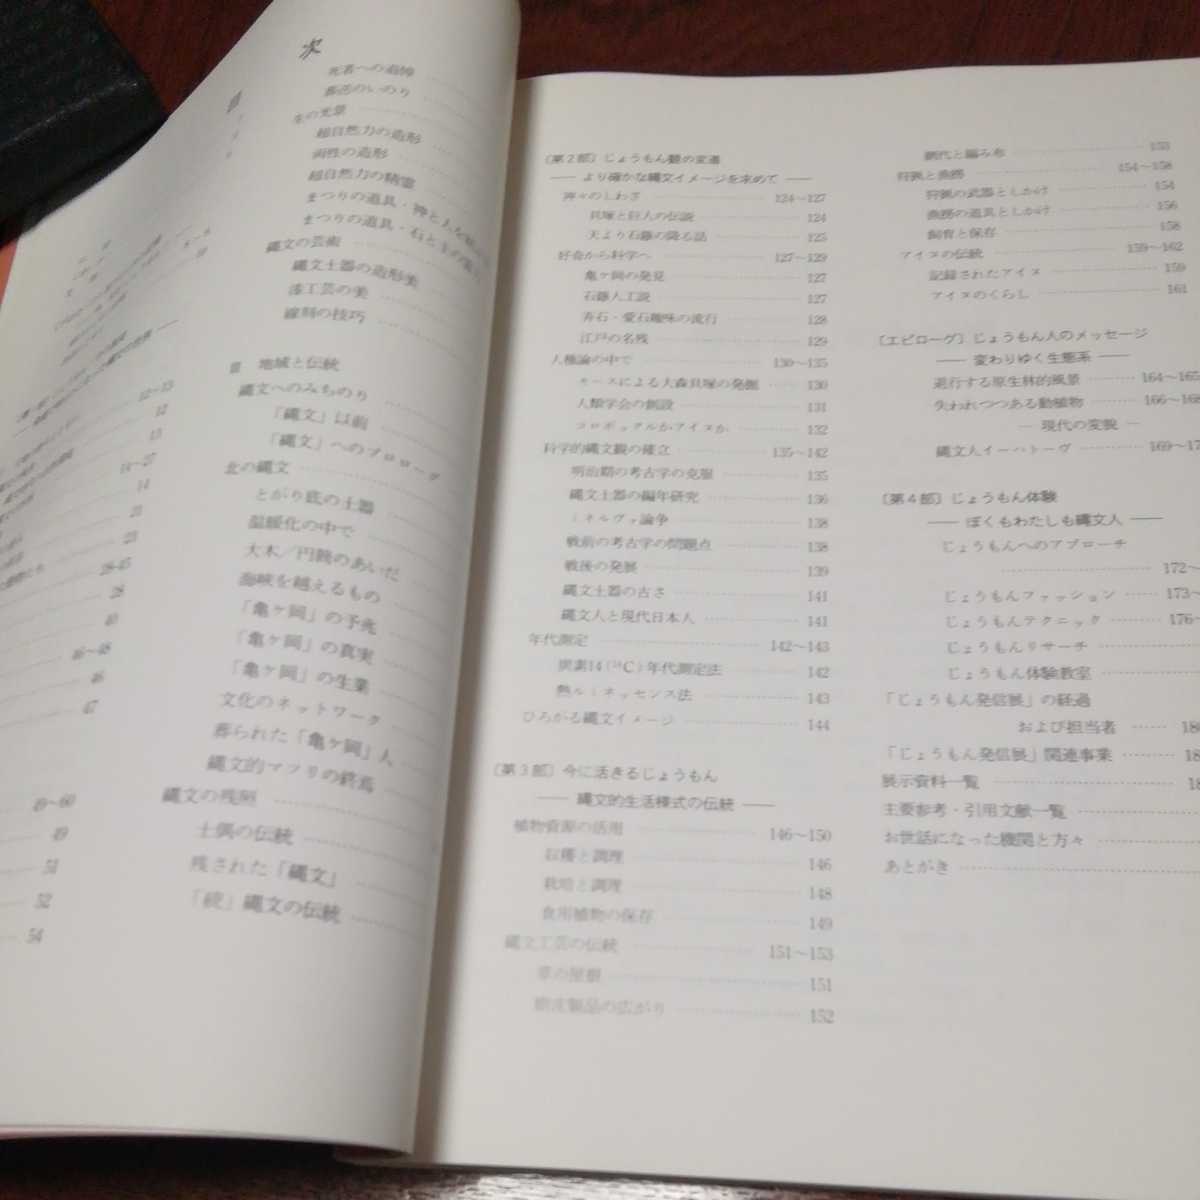 次
死者への追悼
葬送のいのり
冬の光景
超自然力の造形
両性の造形
超自然力の精霊
まつりの道具・神と人を
まつりの道具・石と土の
縄文の芸術
縄文土器の造形美
漆工芸の美
線刻の技巧
Ⅲ 地域と伝統
縄文へのみちのり
「縄文」以前
「縄文」へのプロローグ
北の縄文
とがり底の土器
温暖化の中で
大木／円筒のあいだ
海峡を越えるもの
「亀ケ岡」の予兆
「亀ケ岡」の真実
「亀ケ岡」の生業
文化のネットワーク
葬られた「亀ケ岡」人
縄文的マツリの終焉
縄文の残照
土偶の伝統
残された「縄文」
「続」縄文の伝統
12〜13
12
13
14〜27
14
21
23
28-45
28
40
46〜48
46
47
49〜60
49
51
52
54
〔第2部〕じょうもん観の変遷
── より確かな縄文イメージを求めて ──
神々のしわざ 124〜127
貝塚と巨人の伝説 124
天より石鏃の降る話 125
好奇から科学へ 127〜129
亀ケ岡の発見 127
石鏃人工説 127
弄石・愛石趣味の流行 128
江戸の名残 129
人種論の中で 130〜135
モースによる大森貝塚の発掘 130
人類学会の創設 131
コロボックルかアイヌか 132
科学的縄文観の確立 135〜142
明治期の考古学の克服 135
縄文土器の編年研究 136
ミネルヴァ論争 138
戦前の考古学の問題点 138
戦後の発展 139
縄文土器の古さ 141
縄文人と現代日本人 141
年代測定 142〜143
炭素14（¹⁴C）年代測定法 142
熱ルミネッセンス法 143
ひろがる縄文イメージ 144
〔第3部〕今に活きるじょうもん
── 縄文的生活様式の伝統 ──
植物資源の活用 146〜150
収穫と調理 146
栽培と調理 148
食用植物の保存 149
縄文工芸の伝統 151〜153
草の屋根 151
樹皮製品の広がり 152
網代と編み布 153
狩猟と漁撈 154〜158
狩猟の武器としかけ 154
漁撈の道具としかけ 156
飼育と保存 158
アイヌの伝統 159〜162
記録されたアイヌ 159
アイヌのくらし 161
〔エピローグ〕じょうもん人のメッセージ
── 変わりゆく生態系 ──
退行する原生林的風景 164〜165
失われつつある動植物 166〜168
─ 現代の変貌 ─
縄文人イーハトーヴ 169〜17
〔第4部〕じょうもん体験
── ぼくもわたしも縄文人 ──
じょうもんへのアプローチ
172〜
じょうもんファッション 173〜
じょうもんテクニック 176〜
じょうもんリサーチ
じょうもん体験教室
「じょうもん発信展」の経過
および担当者 18
「じょうもん発信展」関連事業 18
展示資料一覧 18
主要参考・引用文献一覧
お世話になった機関と方々
あとがき